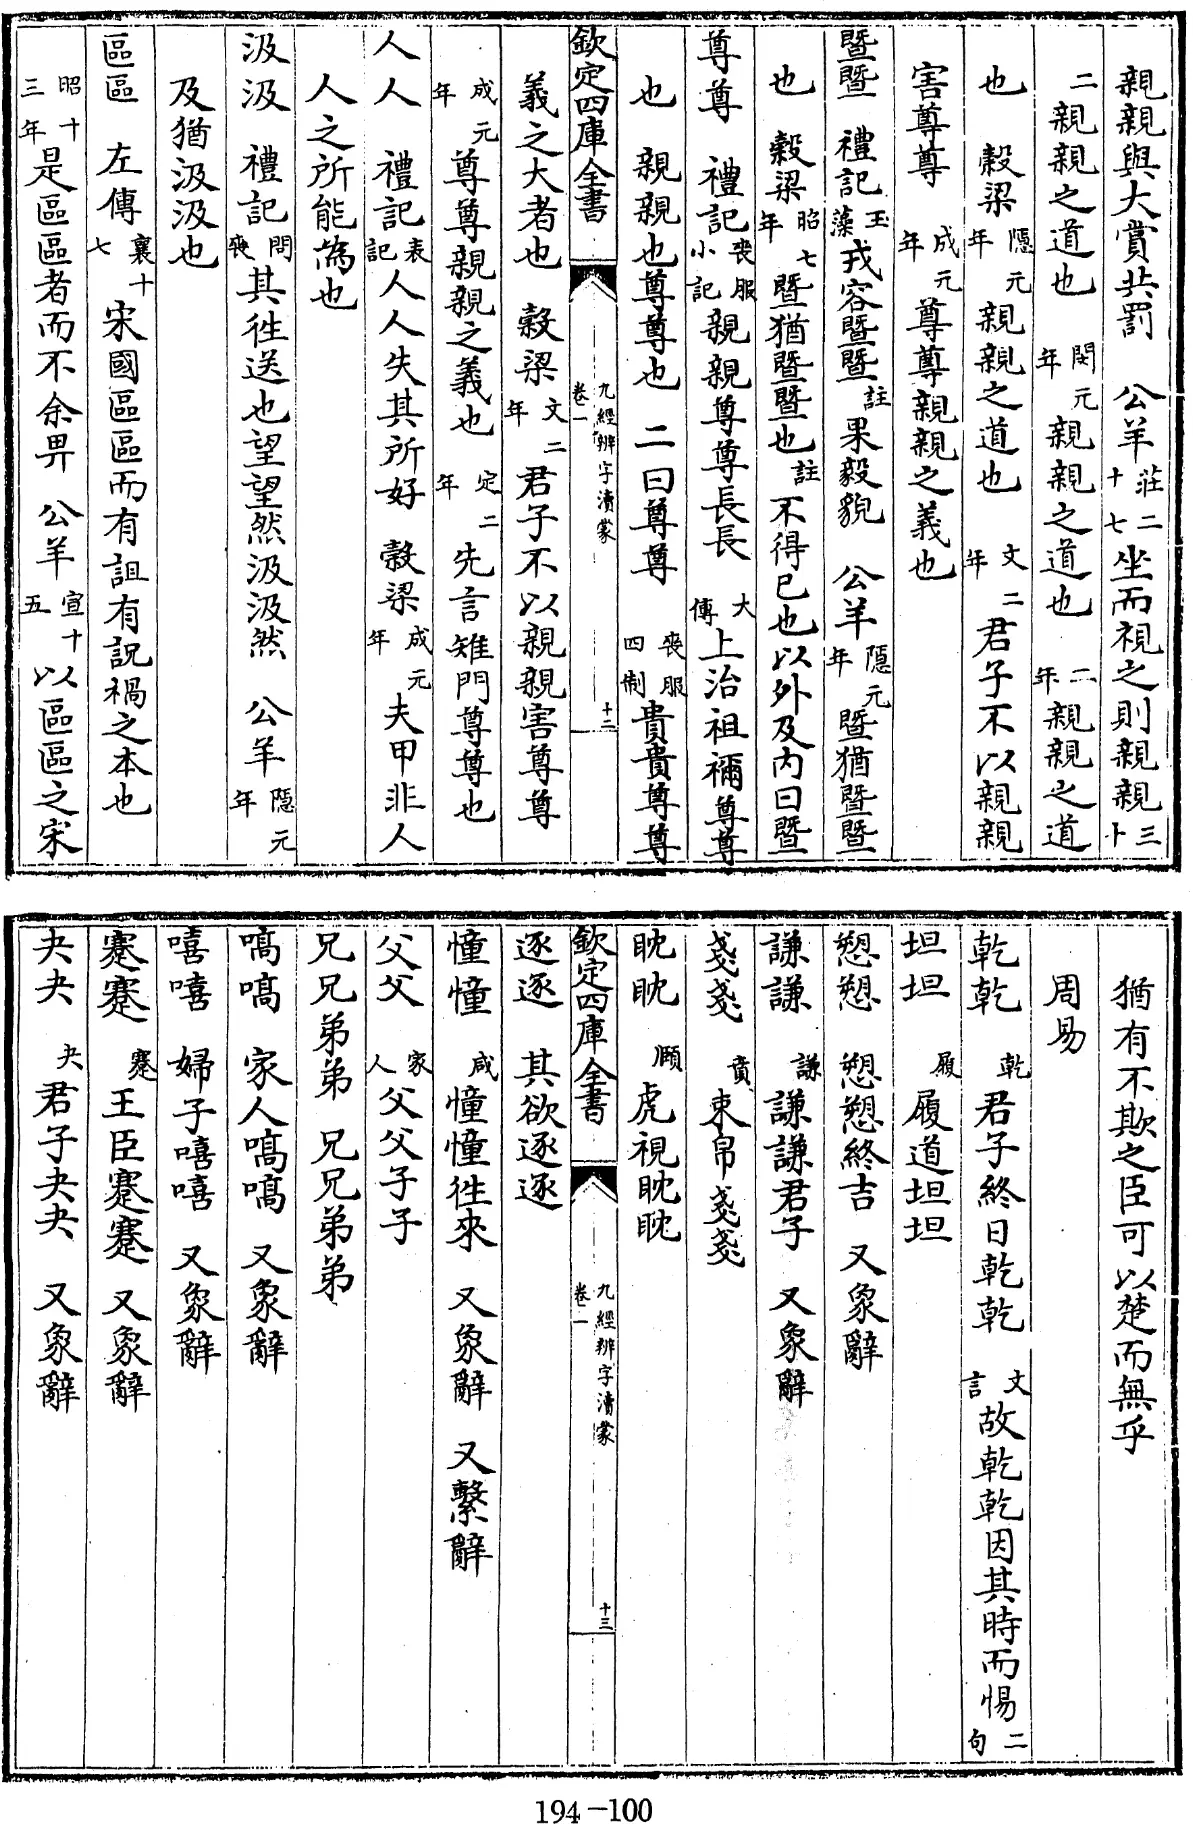 親親與大賞共罰　公羊莊二十七坐而視之則親親三十
二親親之道也　閔元年親親之道也　二年親親之道
也　穀梁隱元年親親之道也　文二年君子不以親親
害尊尊　成元年尊尊親親之義也
暨暨　禮記玉藻戎容暨暨註果毅貌　公羊隱元年暨猶暨暨
也　穀梁昭七年暨猶暨暨也註不得已也以外及内曰暨
尊尊　禮記喪服小記親親尊尊長長　大傳上治祖禰尊尊
也　親親也尊尊也　二曰尊尊　喪服四制貴貴尊尊
欽定四庫全書　九經辨字瀆蒙　卷一　十二
義之大者也　穀梁文二年君子不以親親害尊尊
成元年尊尊親親之義也　定二年先言雉門尊尊也
人人　禮記表記人人失其所好　穀梁成元年夫甲非人
人之所能為也
汲汲　禮記問喪其徃送也望望然汲汲然　公羊隱元年
及猶汲汲也
區區　左傳襄十七宋國區區而有詛有説禍之本也
昭十三年是區區者而不余畀　公羊宣十五以區區之宋
猶有不欺之臣可以楚而無乎
周易
乾乾　乾君子終日乾乾　文言故乾乾因其時而惕二句
坦坦　履履道坦坦
愬愬　愬愬終吉　又象辭
謙謙　謙謙謙君子　又象辭
戔戔　賁束帛戔戔
眈眈　頤虎視眈眈
欽定四庫全書　九經辨字瀆蒙　卷一　十三
逐逐　其欲逐逐
憧憧　咸憧憧徃來　又象辭　又繫辭
父父　家人父父子子
兄兄弟弟　兄兄弟弟
嗃嗃　家人嗃嗃　又象辭
嘻嘻　婦子嘻嘻　又象辭
蹇蹇　蹇王臣蹇蹇　又象辭
夬夬　夬君子夬夬　又象辭
194-100